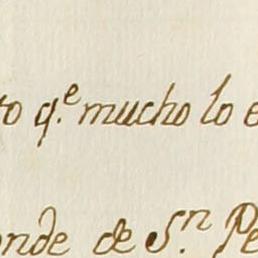 to q.e mucho lo e
onde de S.n Pe